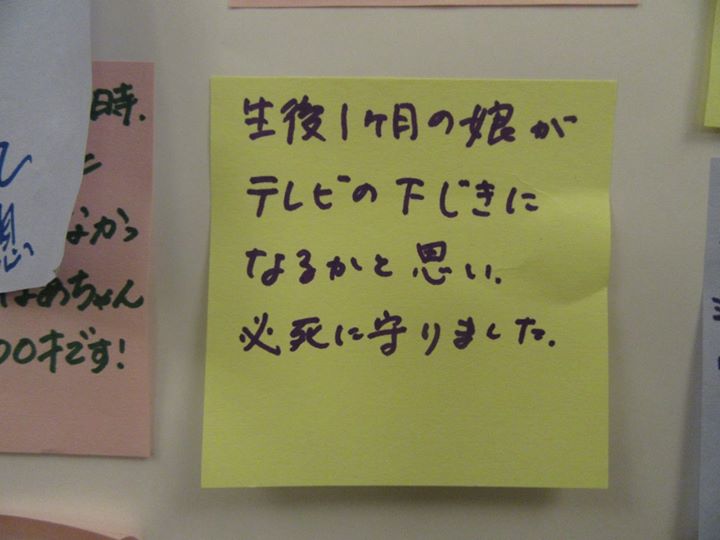 生後1ヶ月の娘が
テレビの下じきに
なるかと思い.
必死に守りました.
時.
なかっ
ちゃん
00才です!